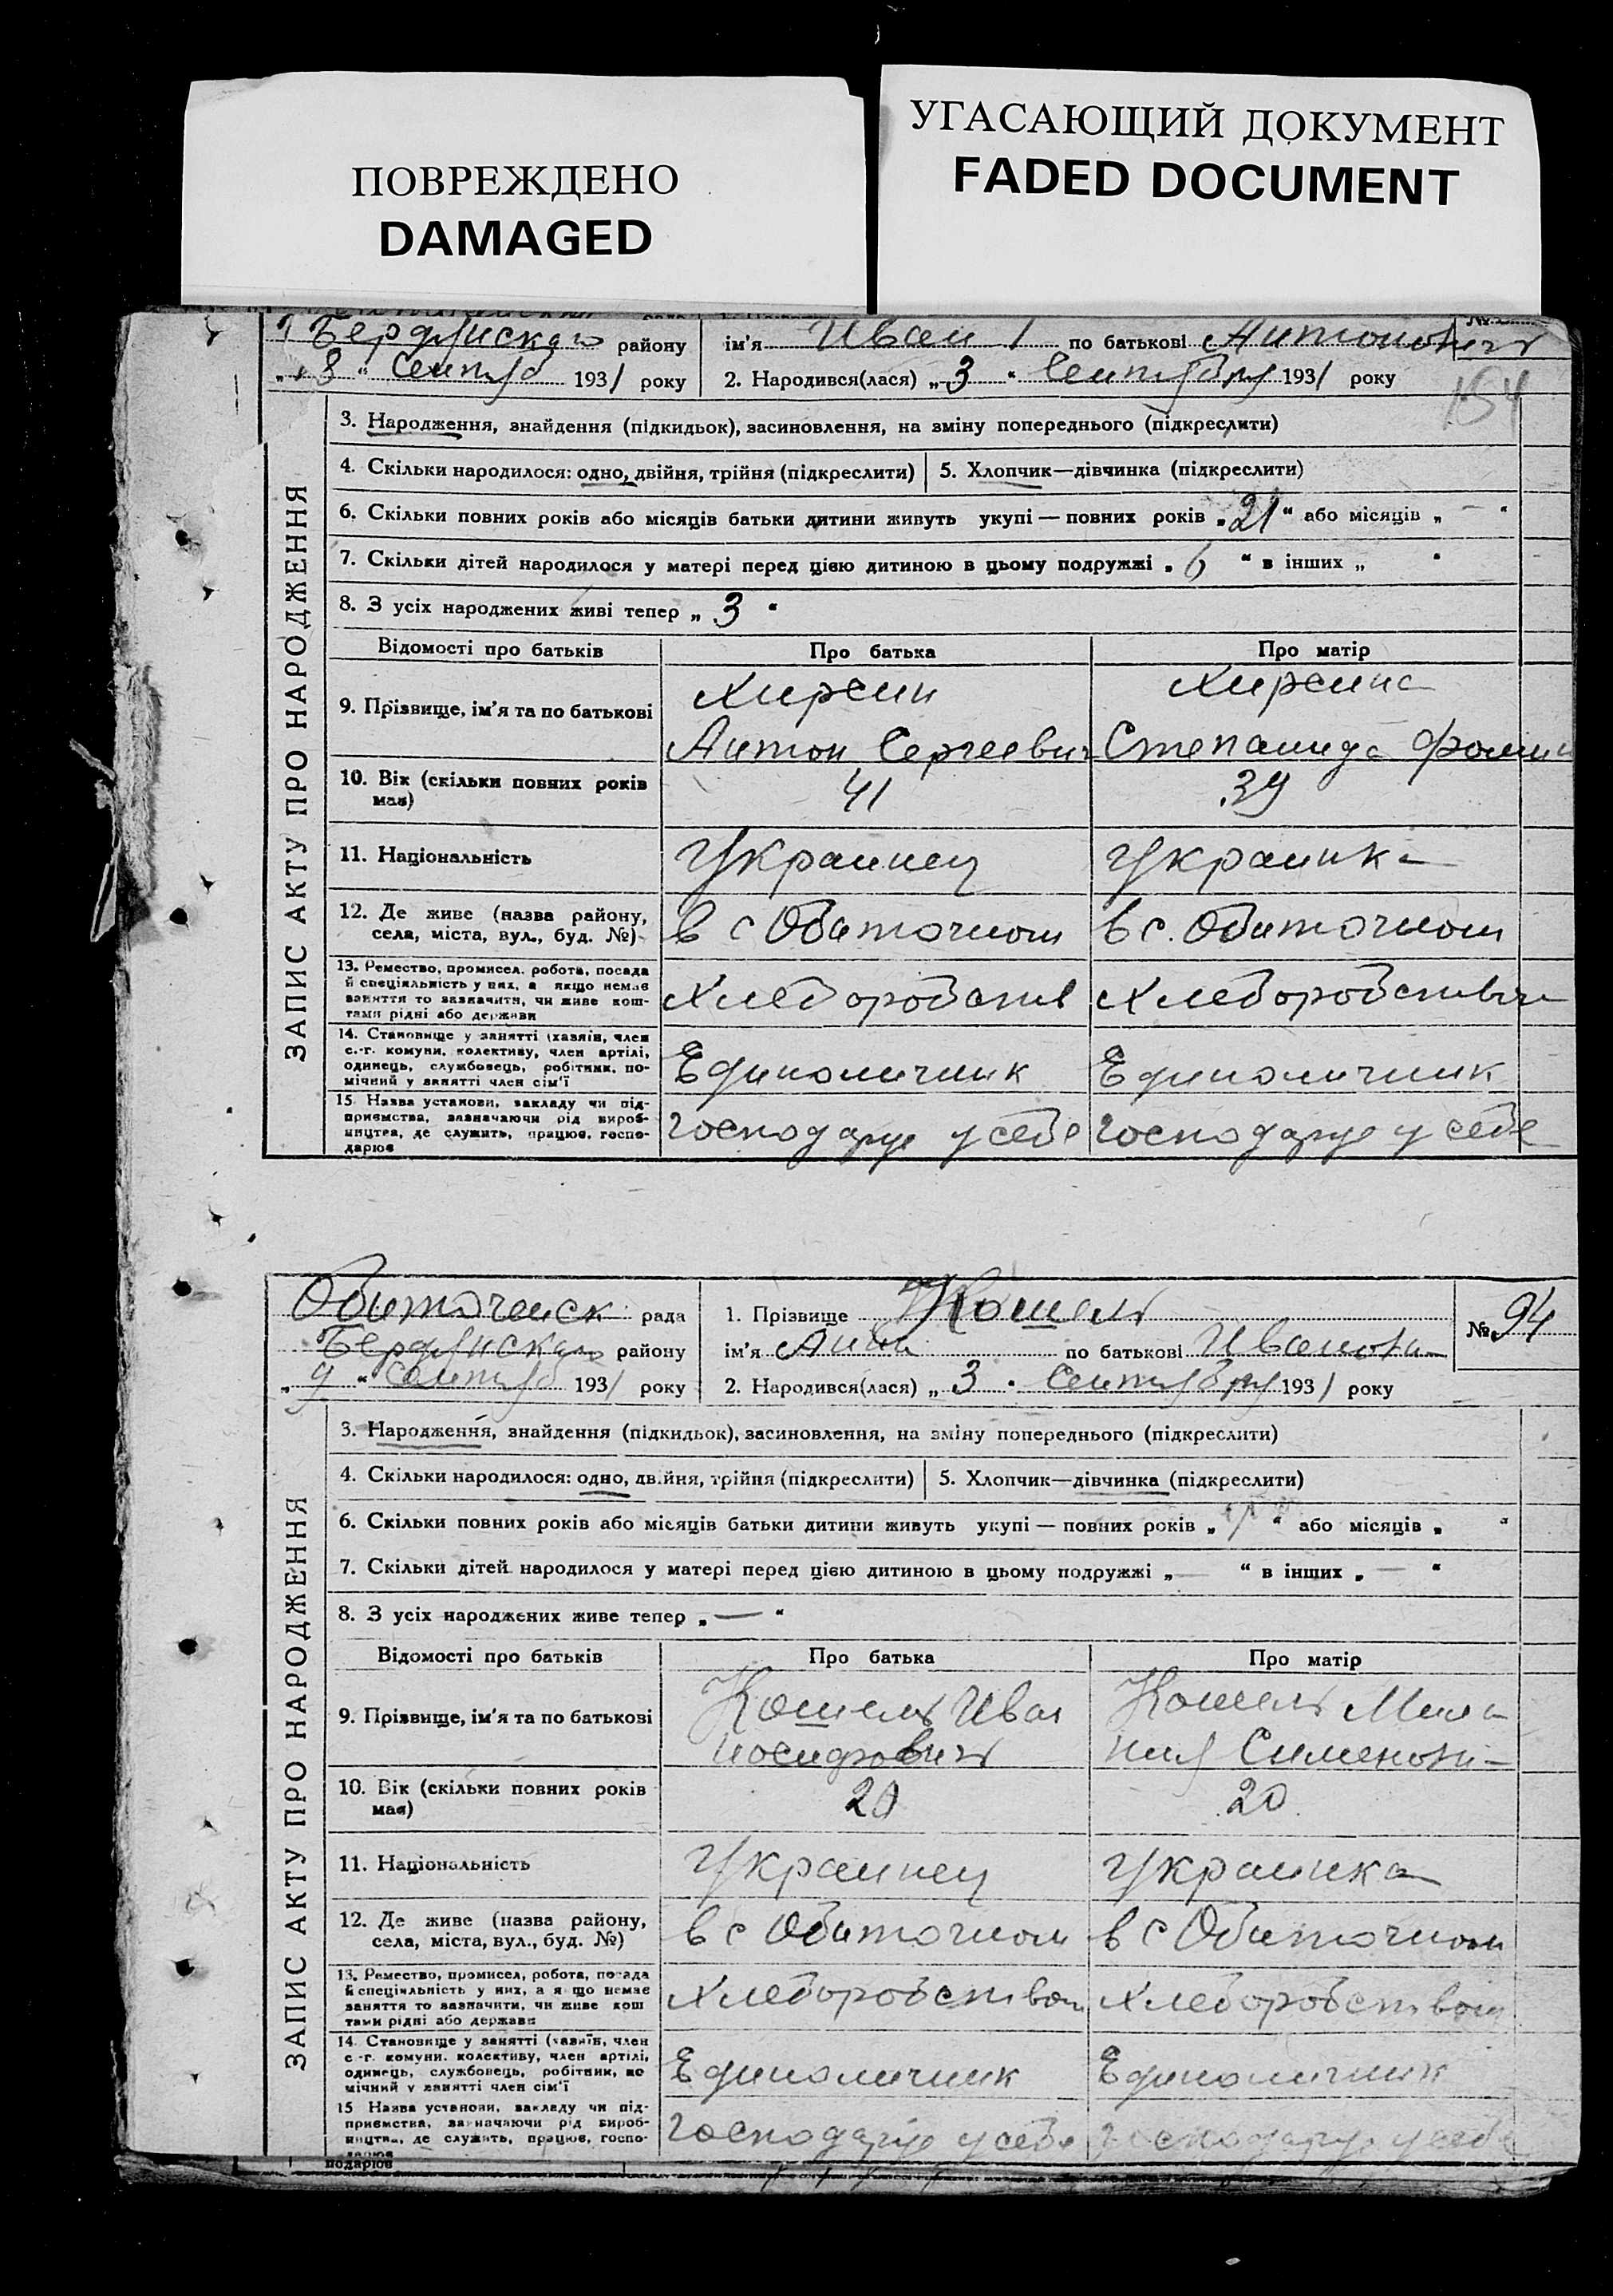 ПОВРЕЖДЕНО
DAMAGED
УГАСАЮЩИЙ ДОКУМЕНТ
FADED DOCUMENT
району ім'я Иван по батькові Антонович
"8" Сентяб 1931 року 2. Народився(лася) „3" Сентября 1931 року
154
ЗАПИС АКТУ ПРО НАРОДЖЕННЯ
3. Народження, знайдення (підкидьок), засиновлення, на зміну попереднього (підкреслити)
4. Скільки народилося: одно, двійня, трійня (підкреслити) 5. Хлопчик—дівчинка (підкреслити)
6. Скільки повних років або місяців батьки дитини живуть укупі — повних років „21" або місяців „ — "
7. Скільки дітей народилося у матері перед цією дитиною в цьому подружжі „6" в інших „ "
8. З усіх народжених живі тепер „3"
Відомості про батьків Про батька Про матір
9. Прізвище, ім'я та по батькові Хирсин Хирсина
Антон Сергеевич Степанида
10. Вік (скільки повних років має) 41 39
11. Національність Украинец Украинка
12. Де живе (назва району, села, міста, вул., буд. №) в с Обиточном в с. Обиточном
13. Ремество, промисел, робота, посада
й спеціяльність у них, а якщо немає
заняття то зазначити, чи живе кош-
тами рідні або держави Хлеборобств
14. Становище у занятті (хазяїн, член
с.-г. комуни, колективу, член артілі,
одинець, службовець, робітник, по-
мічний у занятті член сім'ї Единоличник Единоличник
15. Назва установи, закладу чи під-
приємства, зазначаючи рід вироб-
ництва, де служить, працює, госпо-
дарює господарує у себе господарує у себе
Обиточенск рада 1. Прізвище Кошель № 94
району ім'я Анна по батькові Ивановна
"9" Сентяб 1931 року 2. Народився(лася) „3" Сентября 1931 року
ЗАПИС АКТУ ПРО НАРОДЖЕННЯ
3. Народження, знайдення (підкидьок), засиновлення, на зміну попереднього (підкреслити)
4. Скільки народилося: одно, двійня, трійня (підкреслити) 5. Хлопчик—дівчинка (підкреслити)
6. Скільки повних років або місяців батьки дитини живуть укупі — повних років „ " або місяців „ "
7. Скільки дітей народилося у матері перед цією дитиною в цьому подружжі „— " в інших „ — "
8. З усіх народжених живе тепер „ — "
Відомості про батьків Про батька Про матір
9. Прізвище, ім'я та по батькові Кошель Иван Кошель Мила
иосифович ния Сименовн
10. Вік (скільки повних років має) 20 20
11. Національність Украинец Украинка
12. Де живе (назва району, села, міста, вул., буд. №) в с Обиточном в с Обиточном
13. Ремество, промисел, робота, посада
й спеціяльність у них, а якщо немає
заняття то зазначити, чи живе кош
тами рідні або держави Хлеборобством Хлеборобством
14. Становище у занятті (хазяїн, член
с-г. комуни, колективу, член артілі,
одинець, службовець, робітник, по
мічний у занятті член сім'ї Единоличник Единоличник
15 Назва установи, закладу чи під-
приємства, зазначаючи рід вироб-
ництва, де служить, працює, госпо-
дарює господарує у себе господарує у себе
подарює